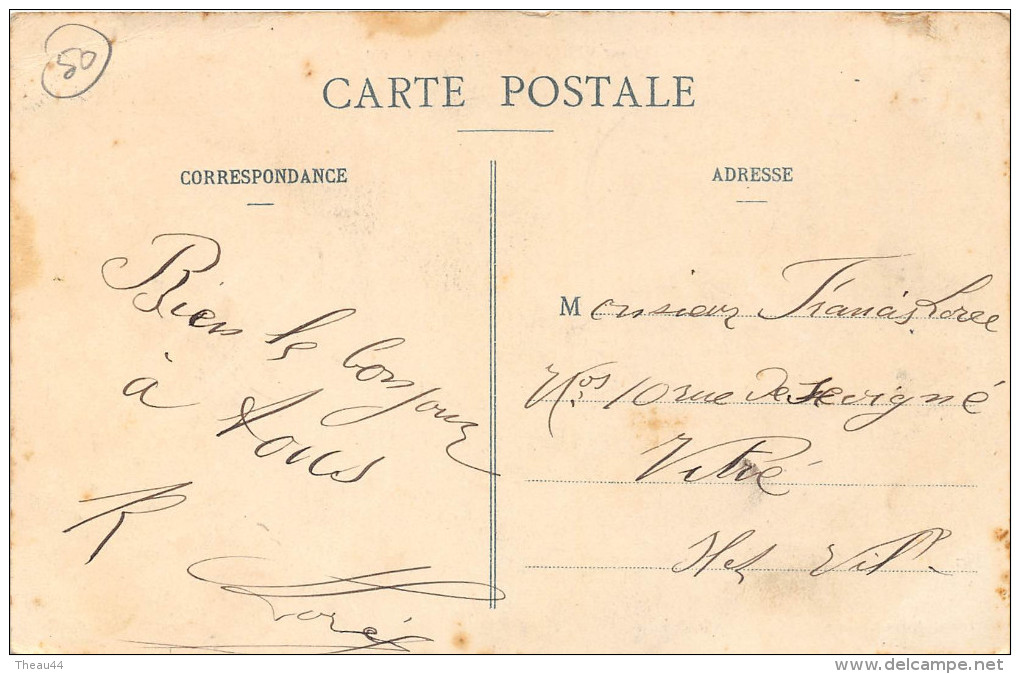 50
CARTE POSTALE
CORRESPONDANCE
Bien le bonjour
à tous
R
Loréé
ADRESSE
Monsieur Francis Loree
10 rue de Sevigné
Vitré
Ile Vil.
Theau44
www.delcampe.net